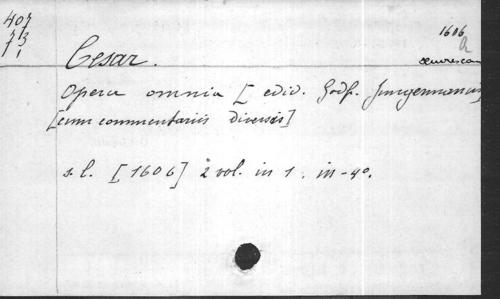 407
73
1
1606
a
Cesar.
Opera omnia [edid. Godf. Jungermannus]
[cum commentariis diversis]
s. l. [1606] 2 vol. in 1. in-4º.